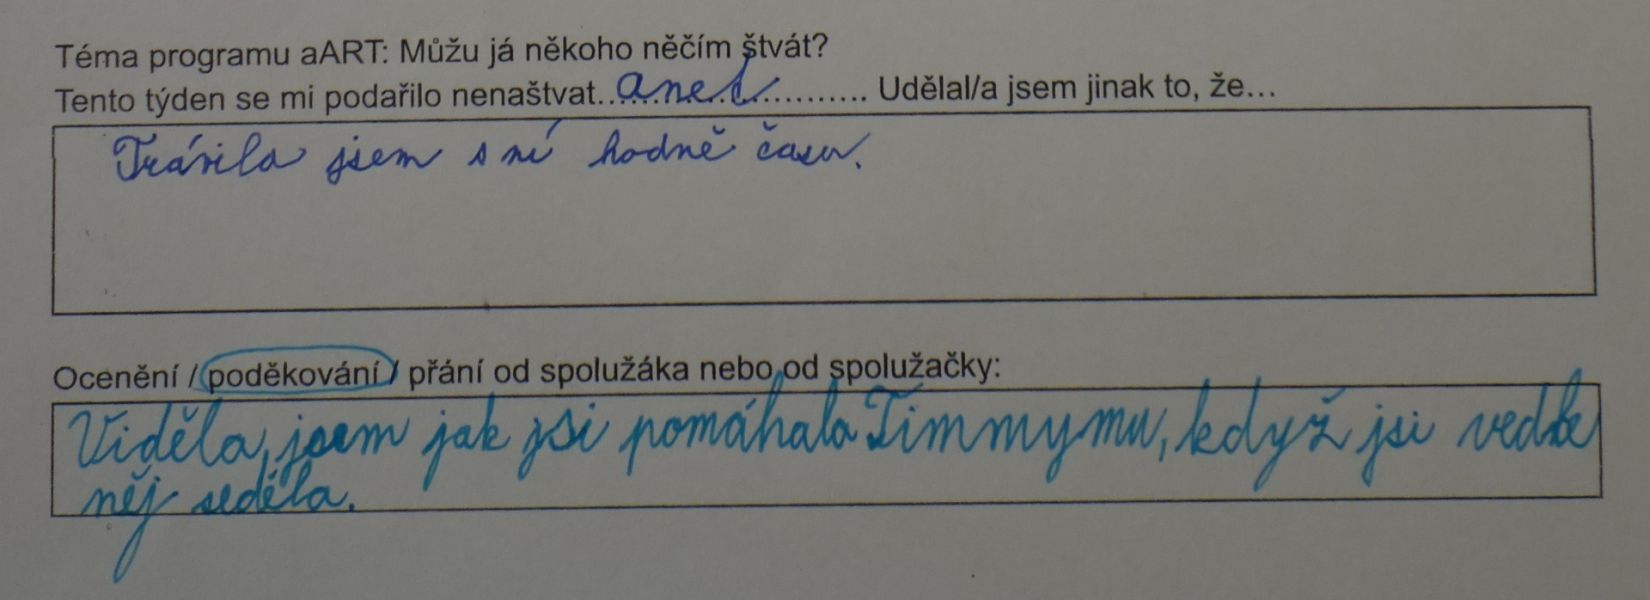 Téma programu aART: Můžu já někoho něčím štvát?
Tento týden se mi podařilo nenaštvat.....anet............. Udělal/a jsem jinak to, že...
Trávila jsem s ní hodně času.
Ocenění / poděkování / přání od spolužáka nebo od spolužačky:
Viděla, jsem jak jsi pomáhala Timmymu, když jsi vedle
něj seděla.